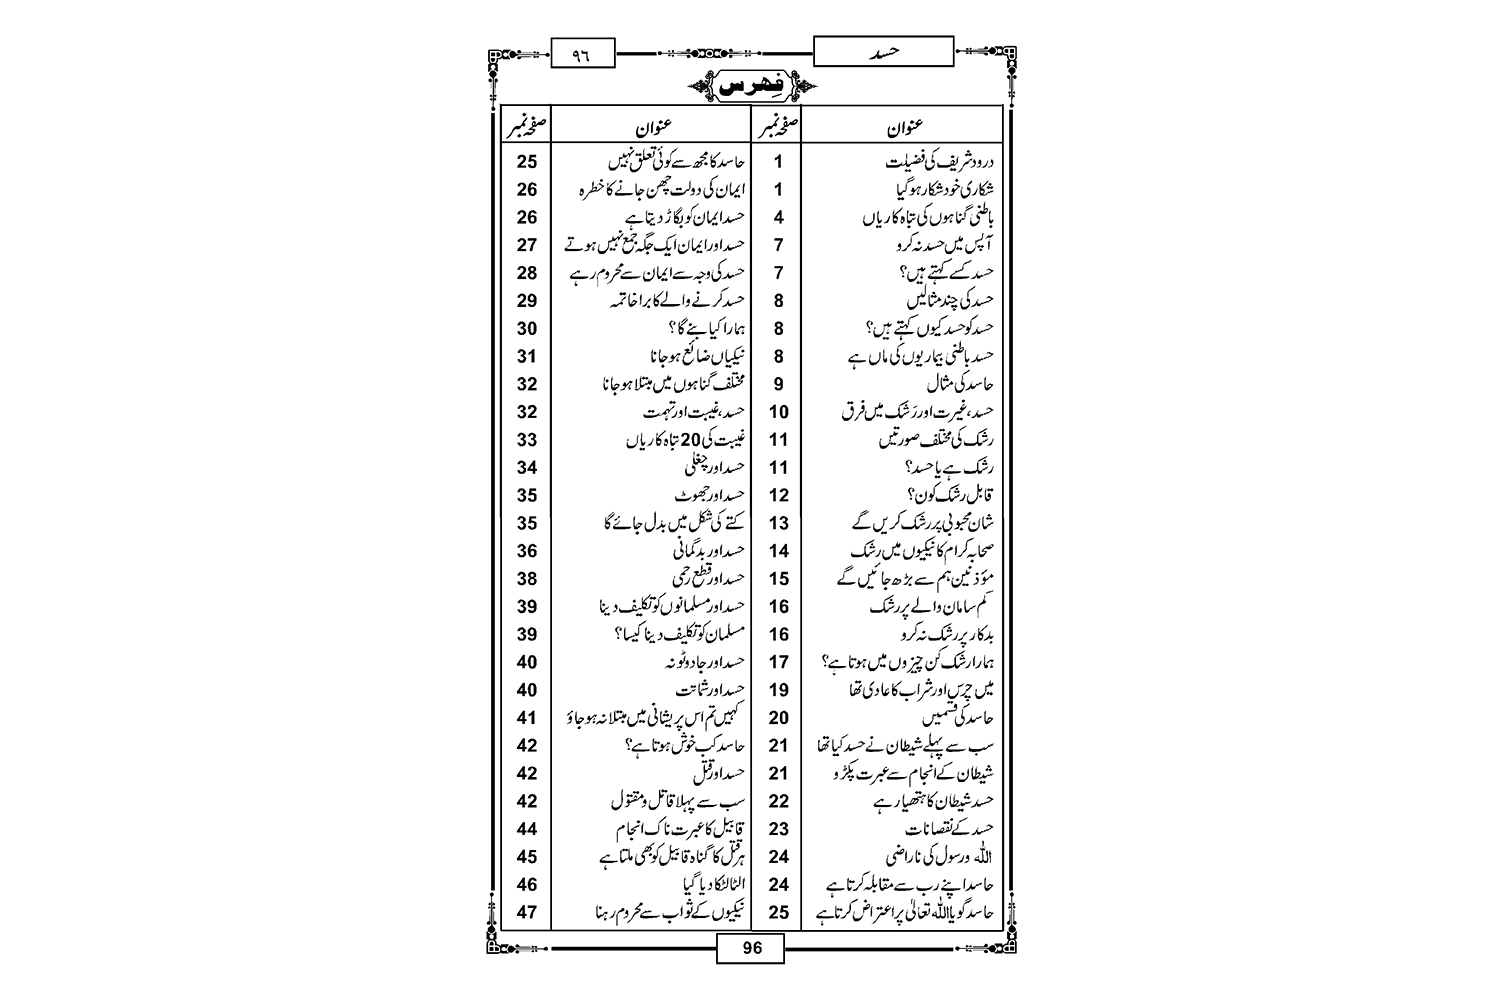 حسد
۹٦
فِہرس
عنوان صفحہ نمبر عنوان صفحہ نمبر
درود شریف کی فضیلت 1 حاسد کا مجھ سے کوئی تعلق نہیں 25
شکاری خود شکار ہو گیا 1 ایمان کی دولت چھن جانے کا خطرہ 26
باطنی گناہوں کی تباہ کاریاں 4 حسد ایمان کو بگاڑ دیتا ہے 26
آپس میں حسد نہ کرو 7 حسد اور ایمان ایک جگہ جمع نہیں ہوتے 27
حسد کسے کہتے ہیں؟ 7 حسد کی وجہ سے ایمان سے محروم رہے 28
حسد کی چند مثالیں 8 حسد کرنے والے کا برا خاتمہ 29
حسد کو حسد کیوں کہتے ہیں؟ 8 ہمارا کیا بنے گا؟ 30
حسد باطنی بیماریوں کی ماں ہے 8 نیکیاں ضائع ہو جانا 31
حاسد کی مثال 9 مختلف گناہوں میں مبتلا ہو جانا 32
حسد، غیرت اور رَشک میں فرق 10 حسد، غیبت اور تہمت 32
رشک کی مختلف صورتیں 11 غیبت کی 20 تباہ کاریاں 33
رشک ہے یا حسد؟ 11 حسد اور چغلی 34
قابل رشک کون؟ 12 حسد اور جھوٹ 35
شان محبوبی پر رشک کریں گے 13 کتے کی شکل میں بدل جائے گا 35
صحابہ کرام کا نیکیوں میں رشک 14 حسد اور بدگمانی 36
مؤذنین ہم سے بڑھ جائیں گے 15 حسد اور قطع رحمی 38
کم سامان والے پر رشک 16 حسد اور مسلمانوں کو تکلیف دینا 39
بدکار پر رشک نہ کرو 16 مسلمان کو تکلیف دینا کیسا؟ 39
ہمارا رشک کن چیزوں میں ہوتا ہے؟ 17 حسد اور جادو ٹونہ 40
میں چرس اور شراب کا عادی تھا 19 حسد اور شماتت 40
حاسد کی قسمیں 20 کہیں تم اس پریشانی میں مبتلا نہ ہو جاؤ 41
سب سے پہلے شیطان نے حسد کیا تھا 21 حاسد کب خوش ہوتا ہے؟ 42
شیطان کے انجام سے عبرت پکڑو 21 حسد اور قتل 42
حسد شیطان کا ہتھیار ہے 22 سب سے پہلا قاتل و مقتول 42
حسد کے نقصانات 23 قابیل کا عبرت ناک انجام 44
اللہ و رسول کی ناراضی 24 ہر قتل کا گناہ قابیل کو بھی ملتا ہے 45
حاسد اپنے رب سے مقابلہ کرتا ہے 24 الٹا لٹکا دیا گیا 46
حاسد گویا اللہ تعالیٰ پر اعتراض کرتا ہے 25 نیکیوں کے ثواب سے محروم رہنا 47
96